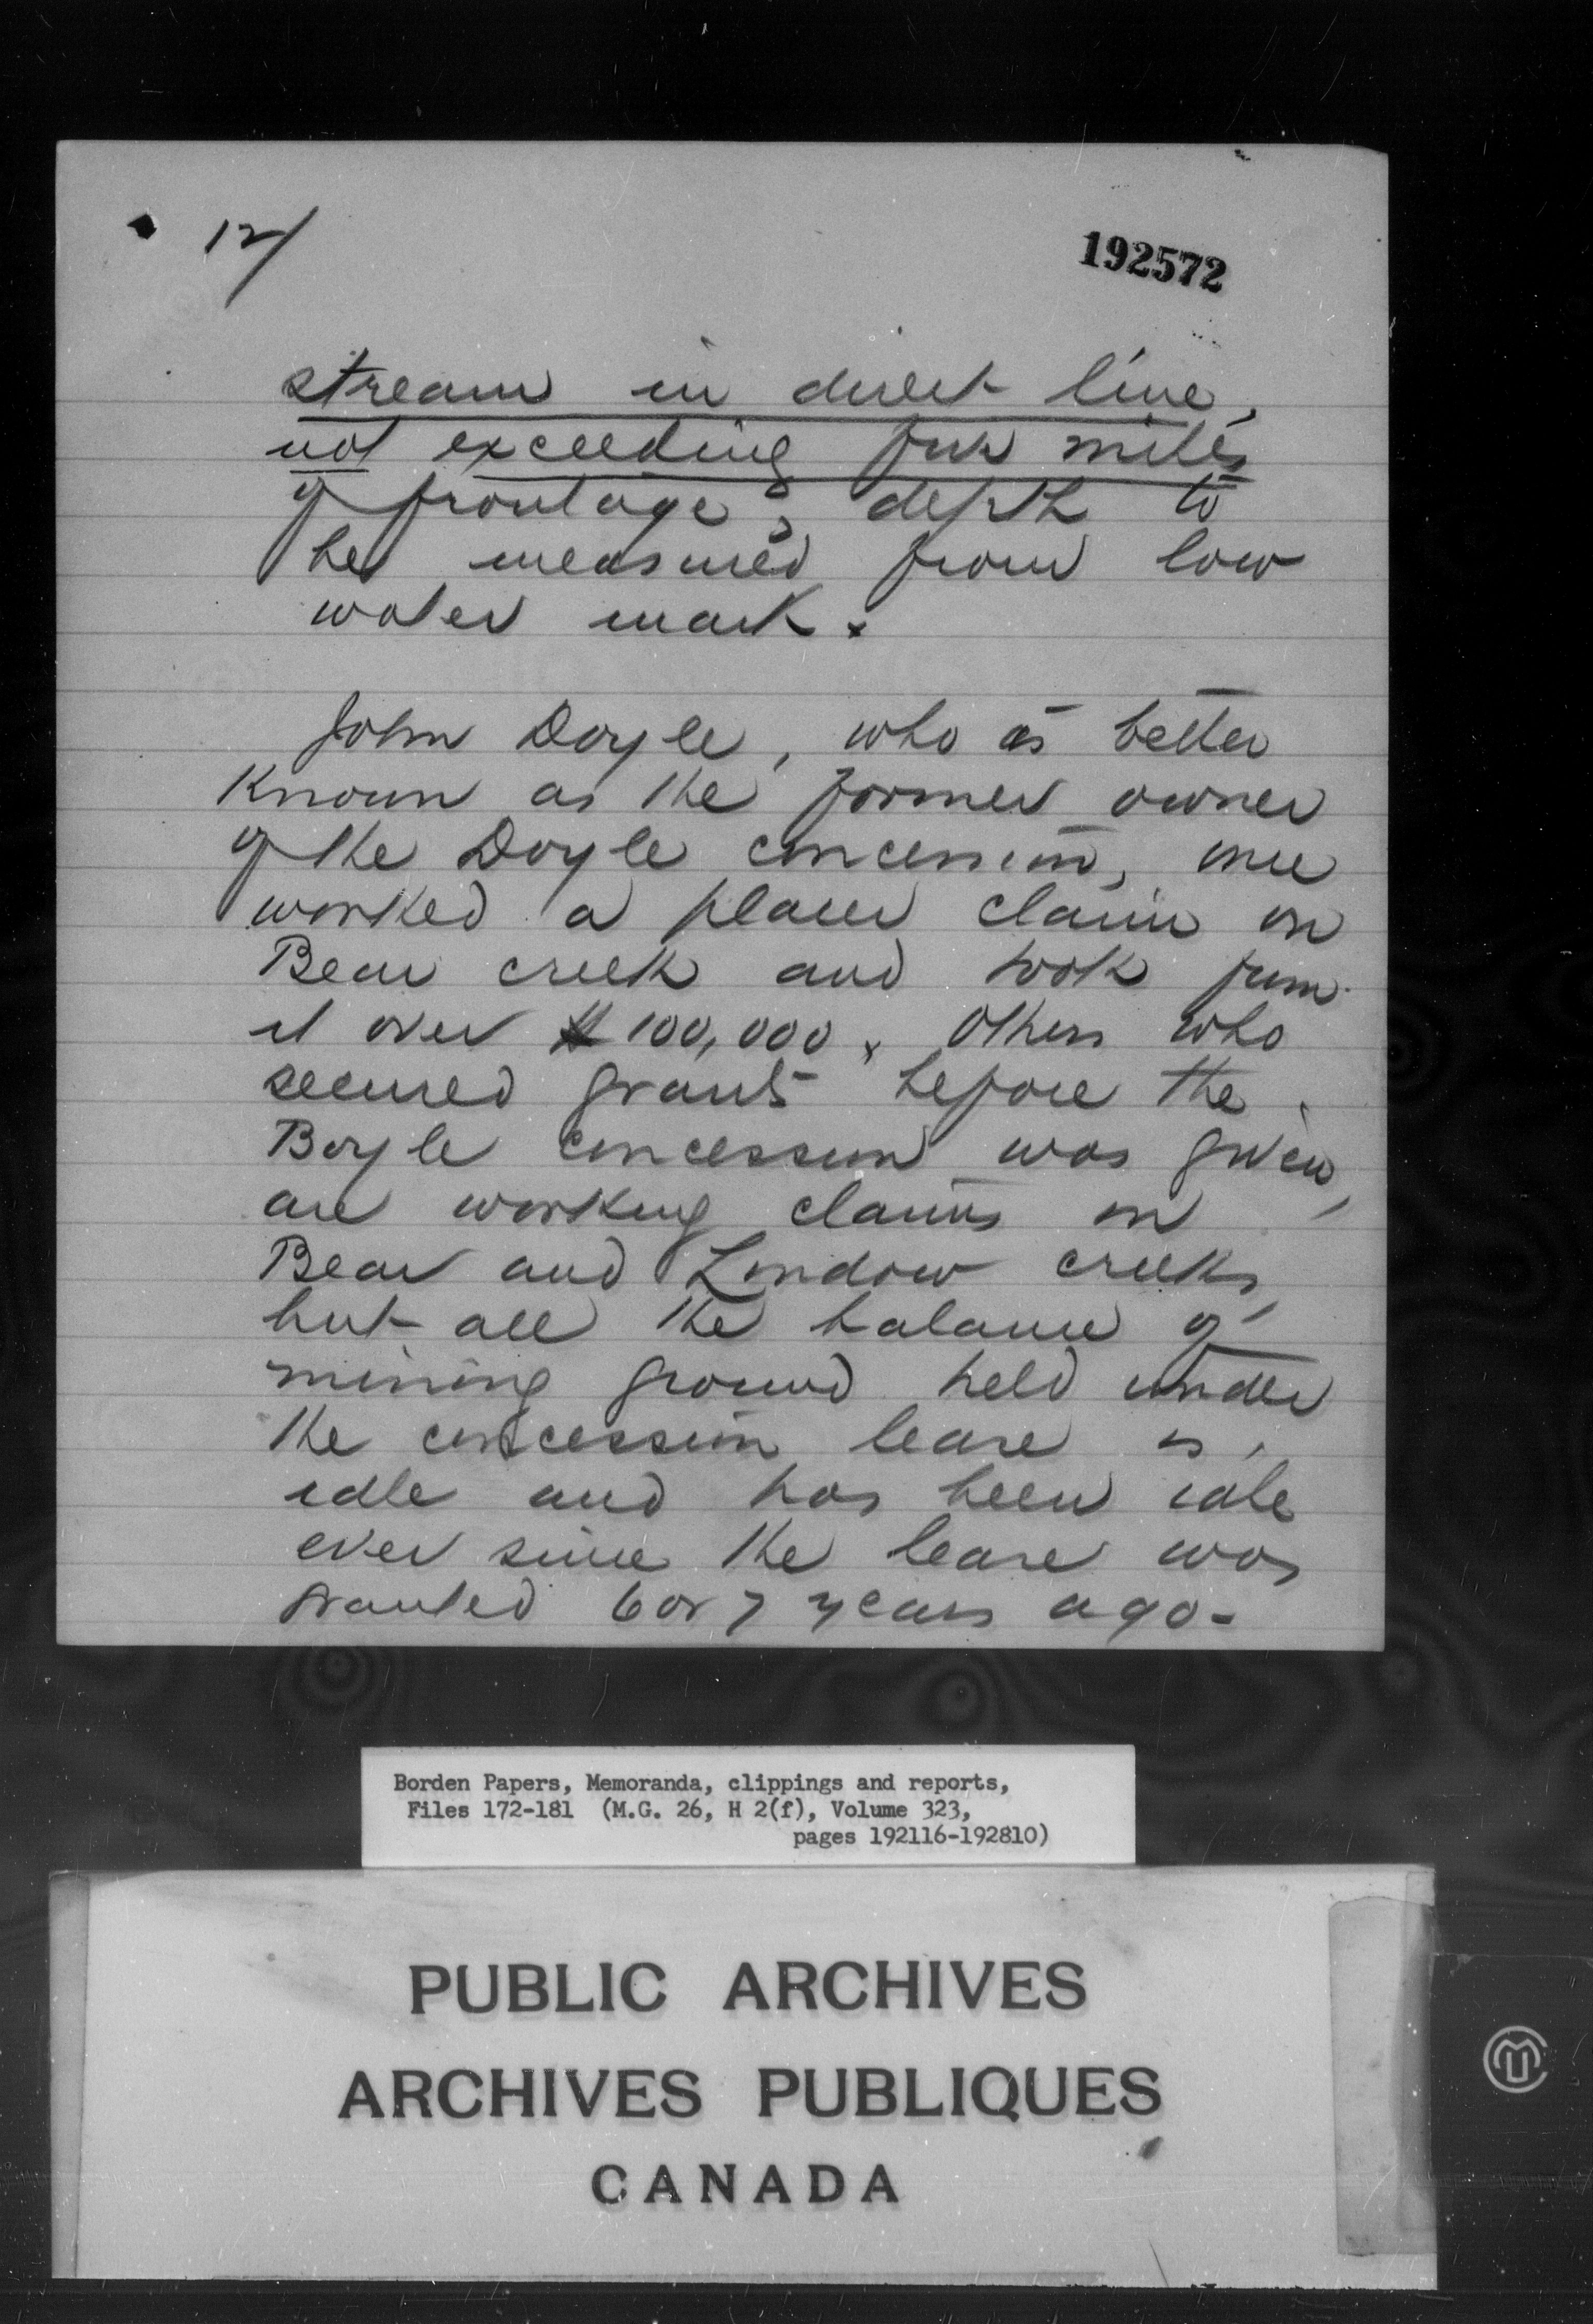 12/
192572
stream in direct line,
not exceeding five miles
of frontage, depth to
be measured from low
water mark.
John Doyle, who is better
known as the former owner
of the Doyle concession, once
worked a placer claim on
Bear creek and took from
it over $100,000. Others who
secured grants before the
Boyle concession was given,
are working claims on
Bear and Lindow creeks,
but all the balance of
mining ground held under
the concession lease is
idle and has been idle
ever since the lease was
granted 6 or 7 years ago-
Borden Papers, Memoranda, clippings and reports,
Files 172-181 (M.G. 26, H 2(f), Volume 323,
pages 192116-192810)
PUBLIC ARCHIVES
ARCHIVES PUBLIQUES
CANADA